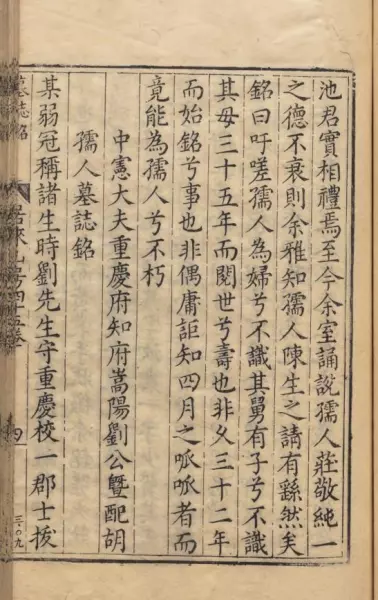 池君實相禮焉至今余室誦說孺人莊敬純一
之德不衰則余雅知孺人陳生之請有繇然矣
銘曰吁嗟孺人為婦兮不識其舅有子兮不識
其母三十五年而閱世兮壽也非夂三十二年
而始銘兮事也非偶庸詎知四月之呱呱者而
竟能為孺人兮不朽
中憲大夫重慶府知府嵩陽劉公暨配胡
孺人墓誌銘
某弱冠稱諸生時劉先生守重慶校一郡士拔
墓志銘
四
三〇九